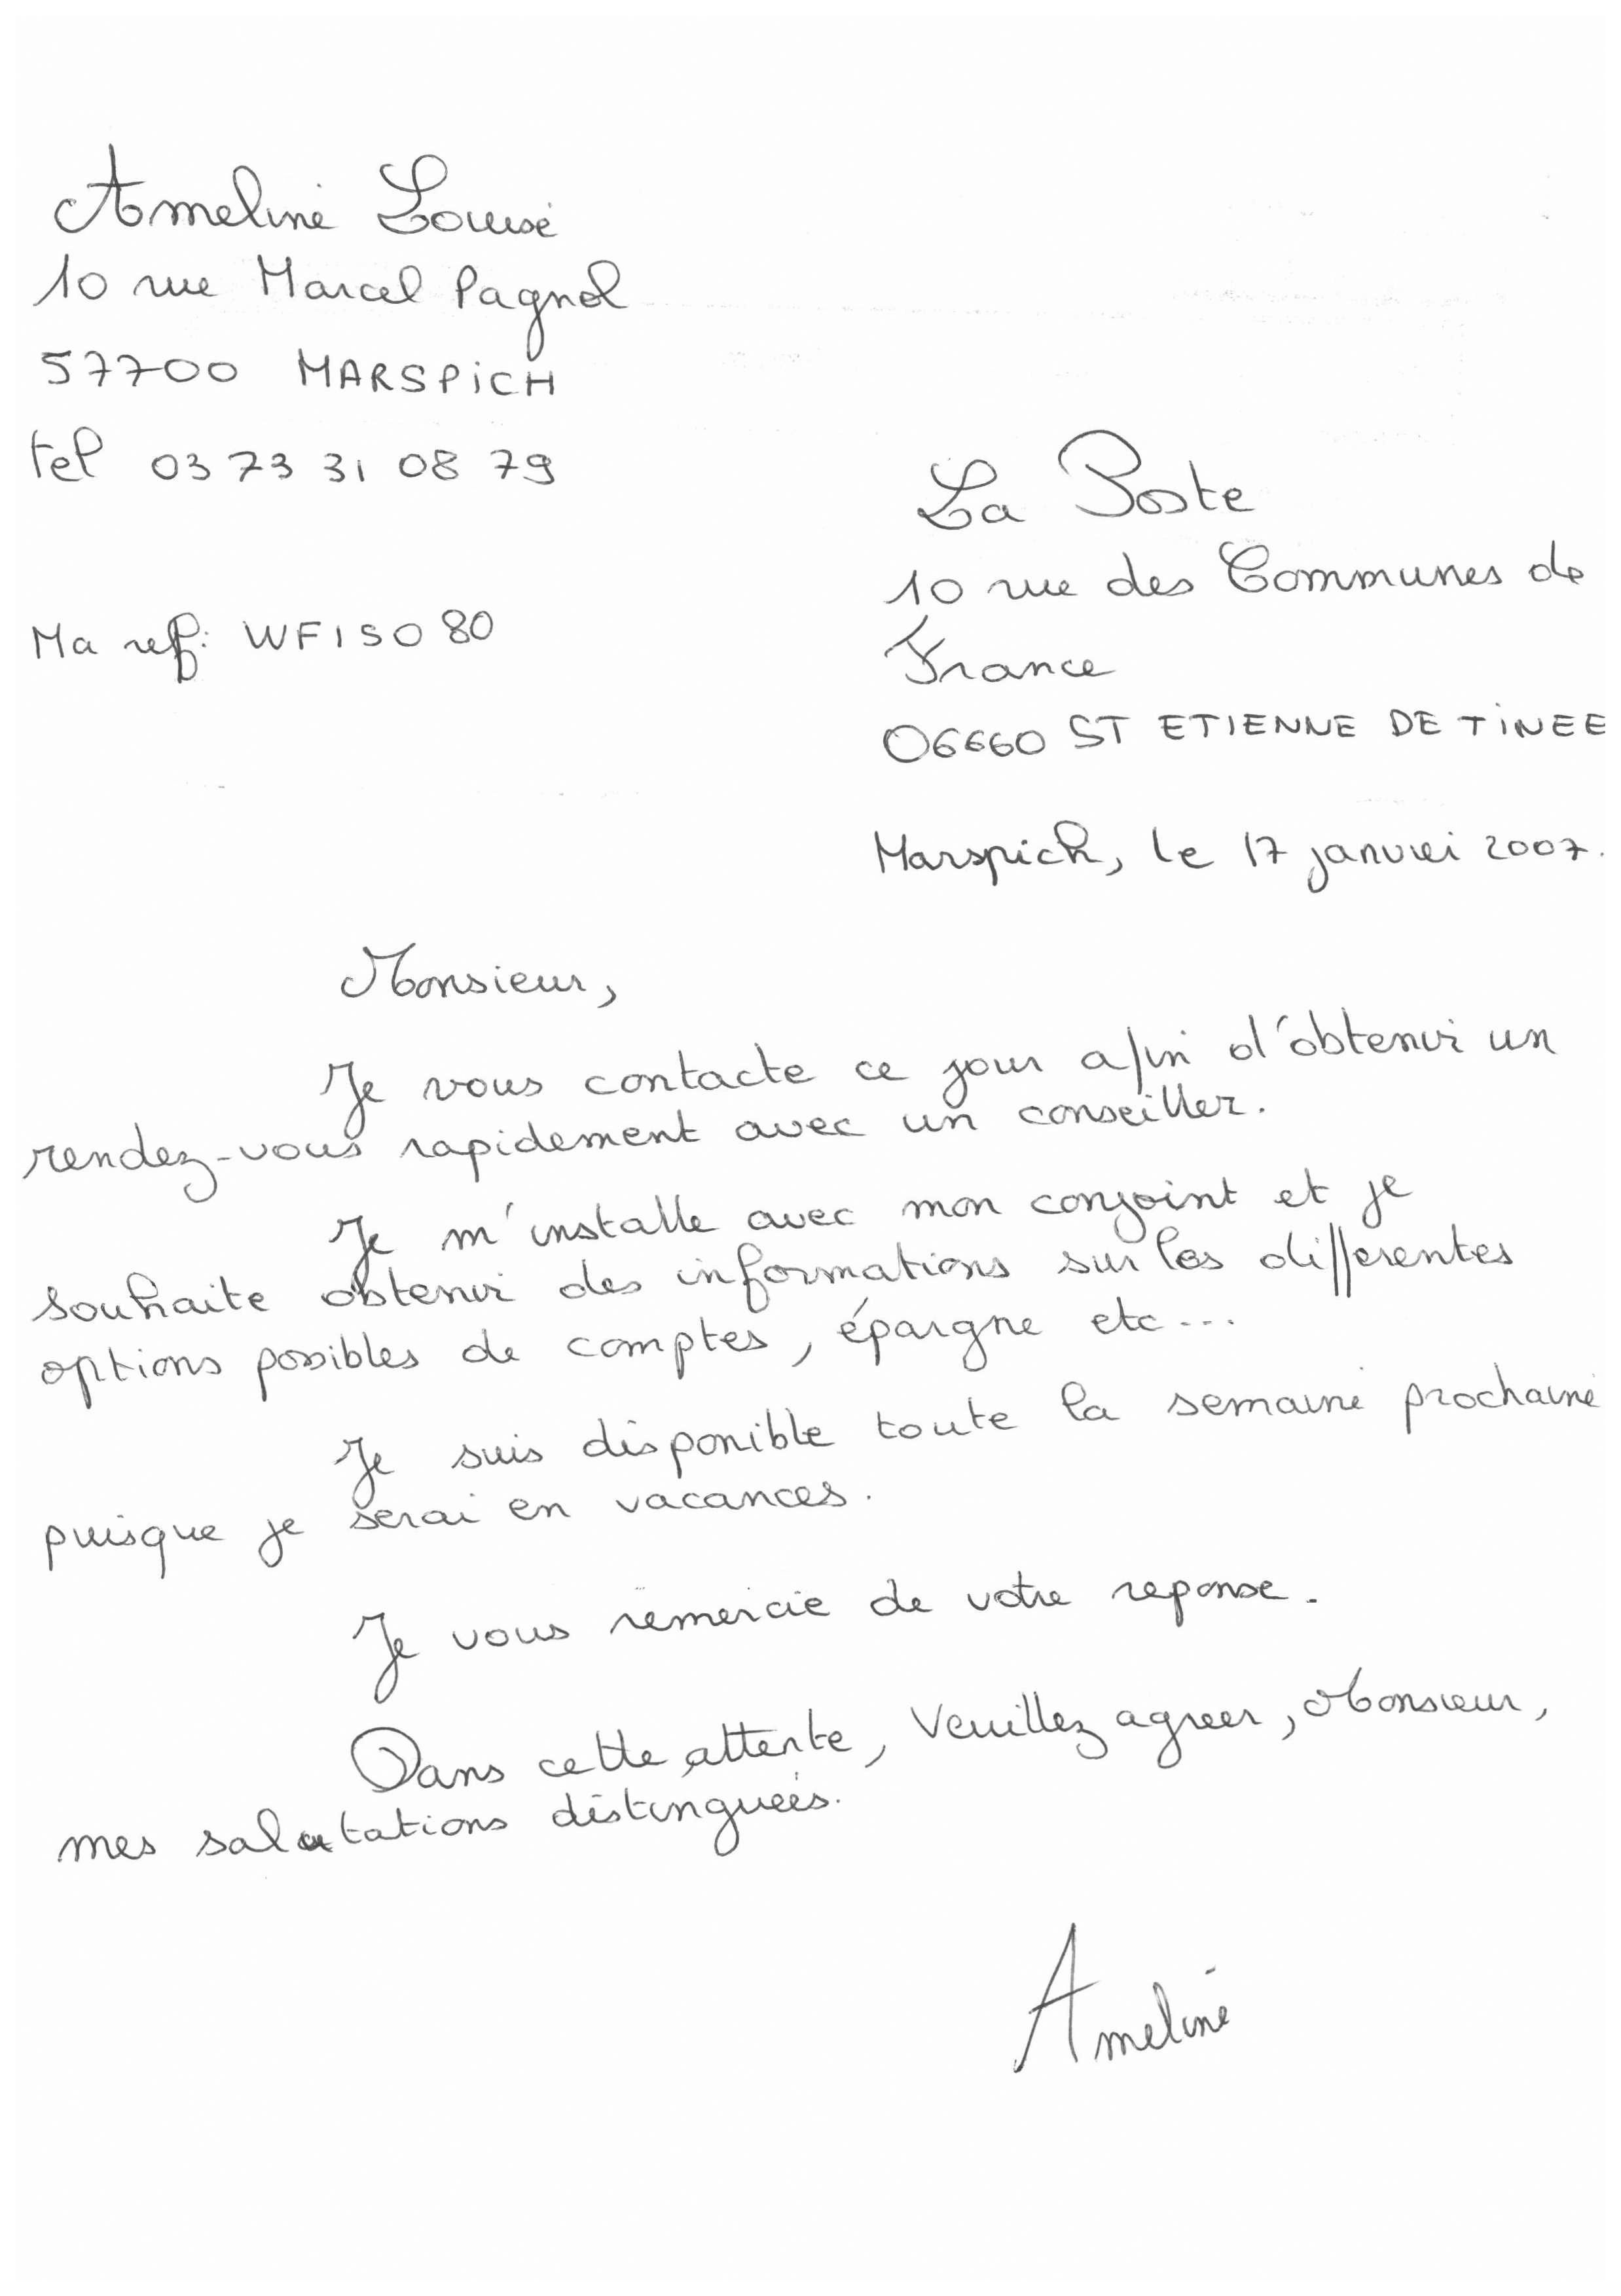 Ameline Louise
10 rue Marcel Pagnol
57700 MARSPiCH
tel 03 73 31 08 79
La Poste
10 rue des Communes de
France
06660 ST ETIENNE DE TiNEE
Ma ref: WFISO80
Marspich, le 17 janvier 2007.
Monsieur,
Je vous contacte ce jour afin d'obtenir un
rendez-vous rapidement avec un conseiller.
Je m'installe avec mon conjoint et je
souhaite obtenir des informations sur les differentes
options possibles de comptes, épargne etc...
Je suis disponible toute la semaine prochaine
puisque je serai en vacances.
Je vous remercie de votre reponse.
Dans cette attente, Veuillez agreer, Monsieur,
mes salutations distinguées.
Ameline